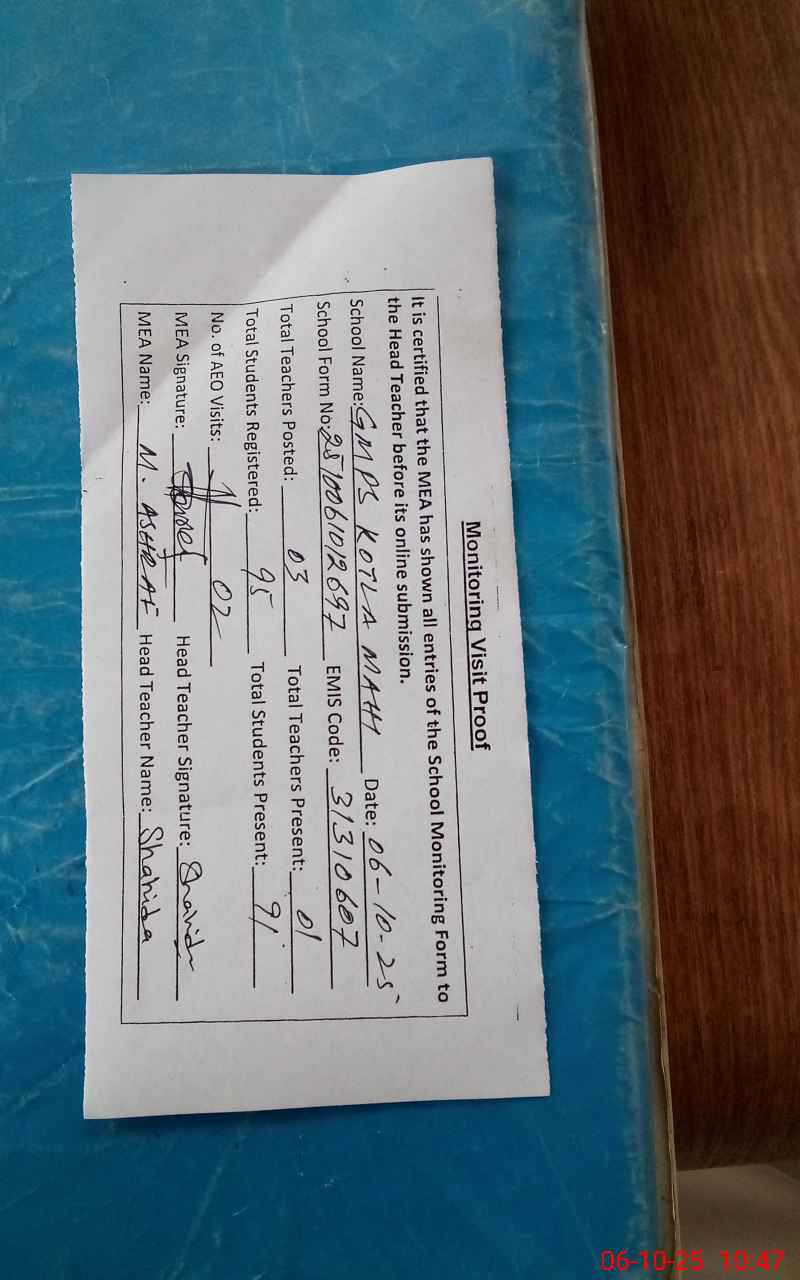 Monitoring Visit Proof
It is certified that the MEA has shown all entries of the School Monitoring Form to
the Head Teacher before its online submission.
School Name: GMPS KOTLA MAHI Date: 06-10-25
School Form No: 2510061012697 EMIS Code: 31310607
Total Teachers Posted: 03 Total Teachers Present: 01
Total Students Registered: 95 Total Students Present: 91
No. of AEO Visits: 02
MEA Signature: Head Teacher Signature: Shahida
MEA Name: M. ASHRAF Head Teacher Name: Shahida
06-10-25 10:47